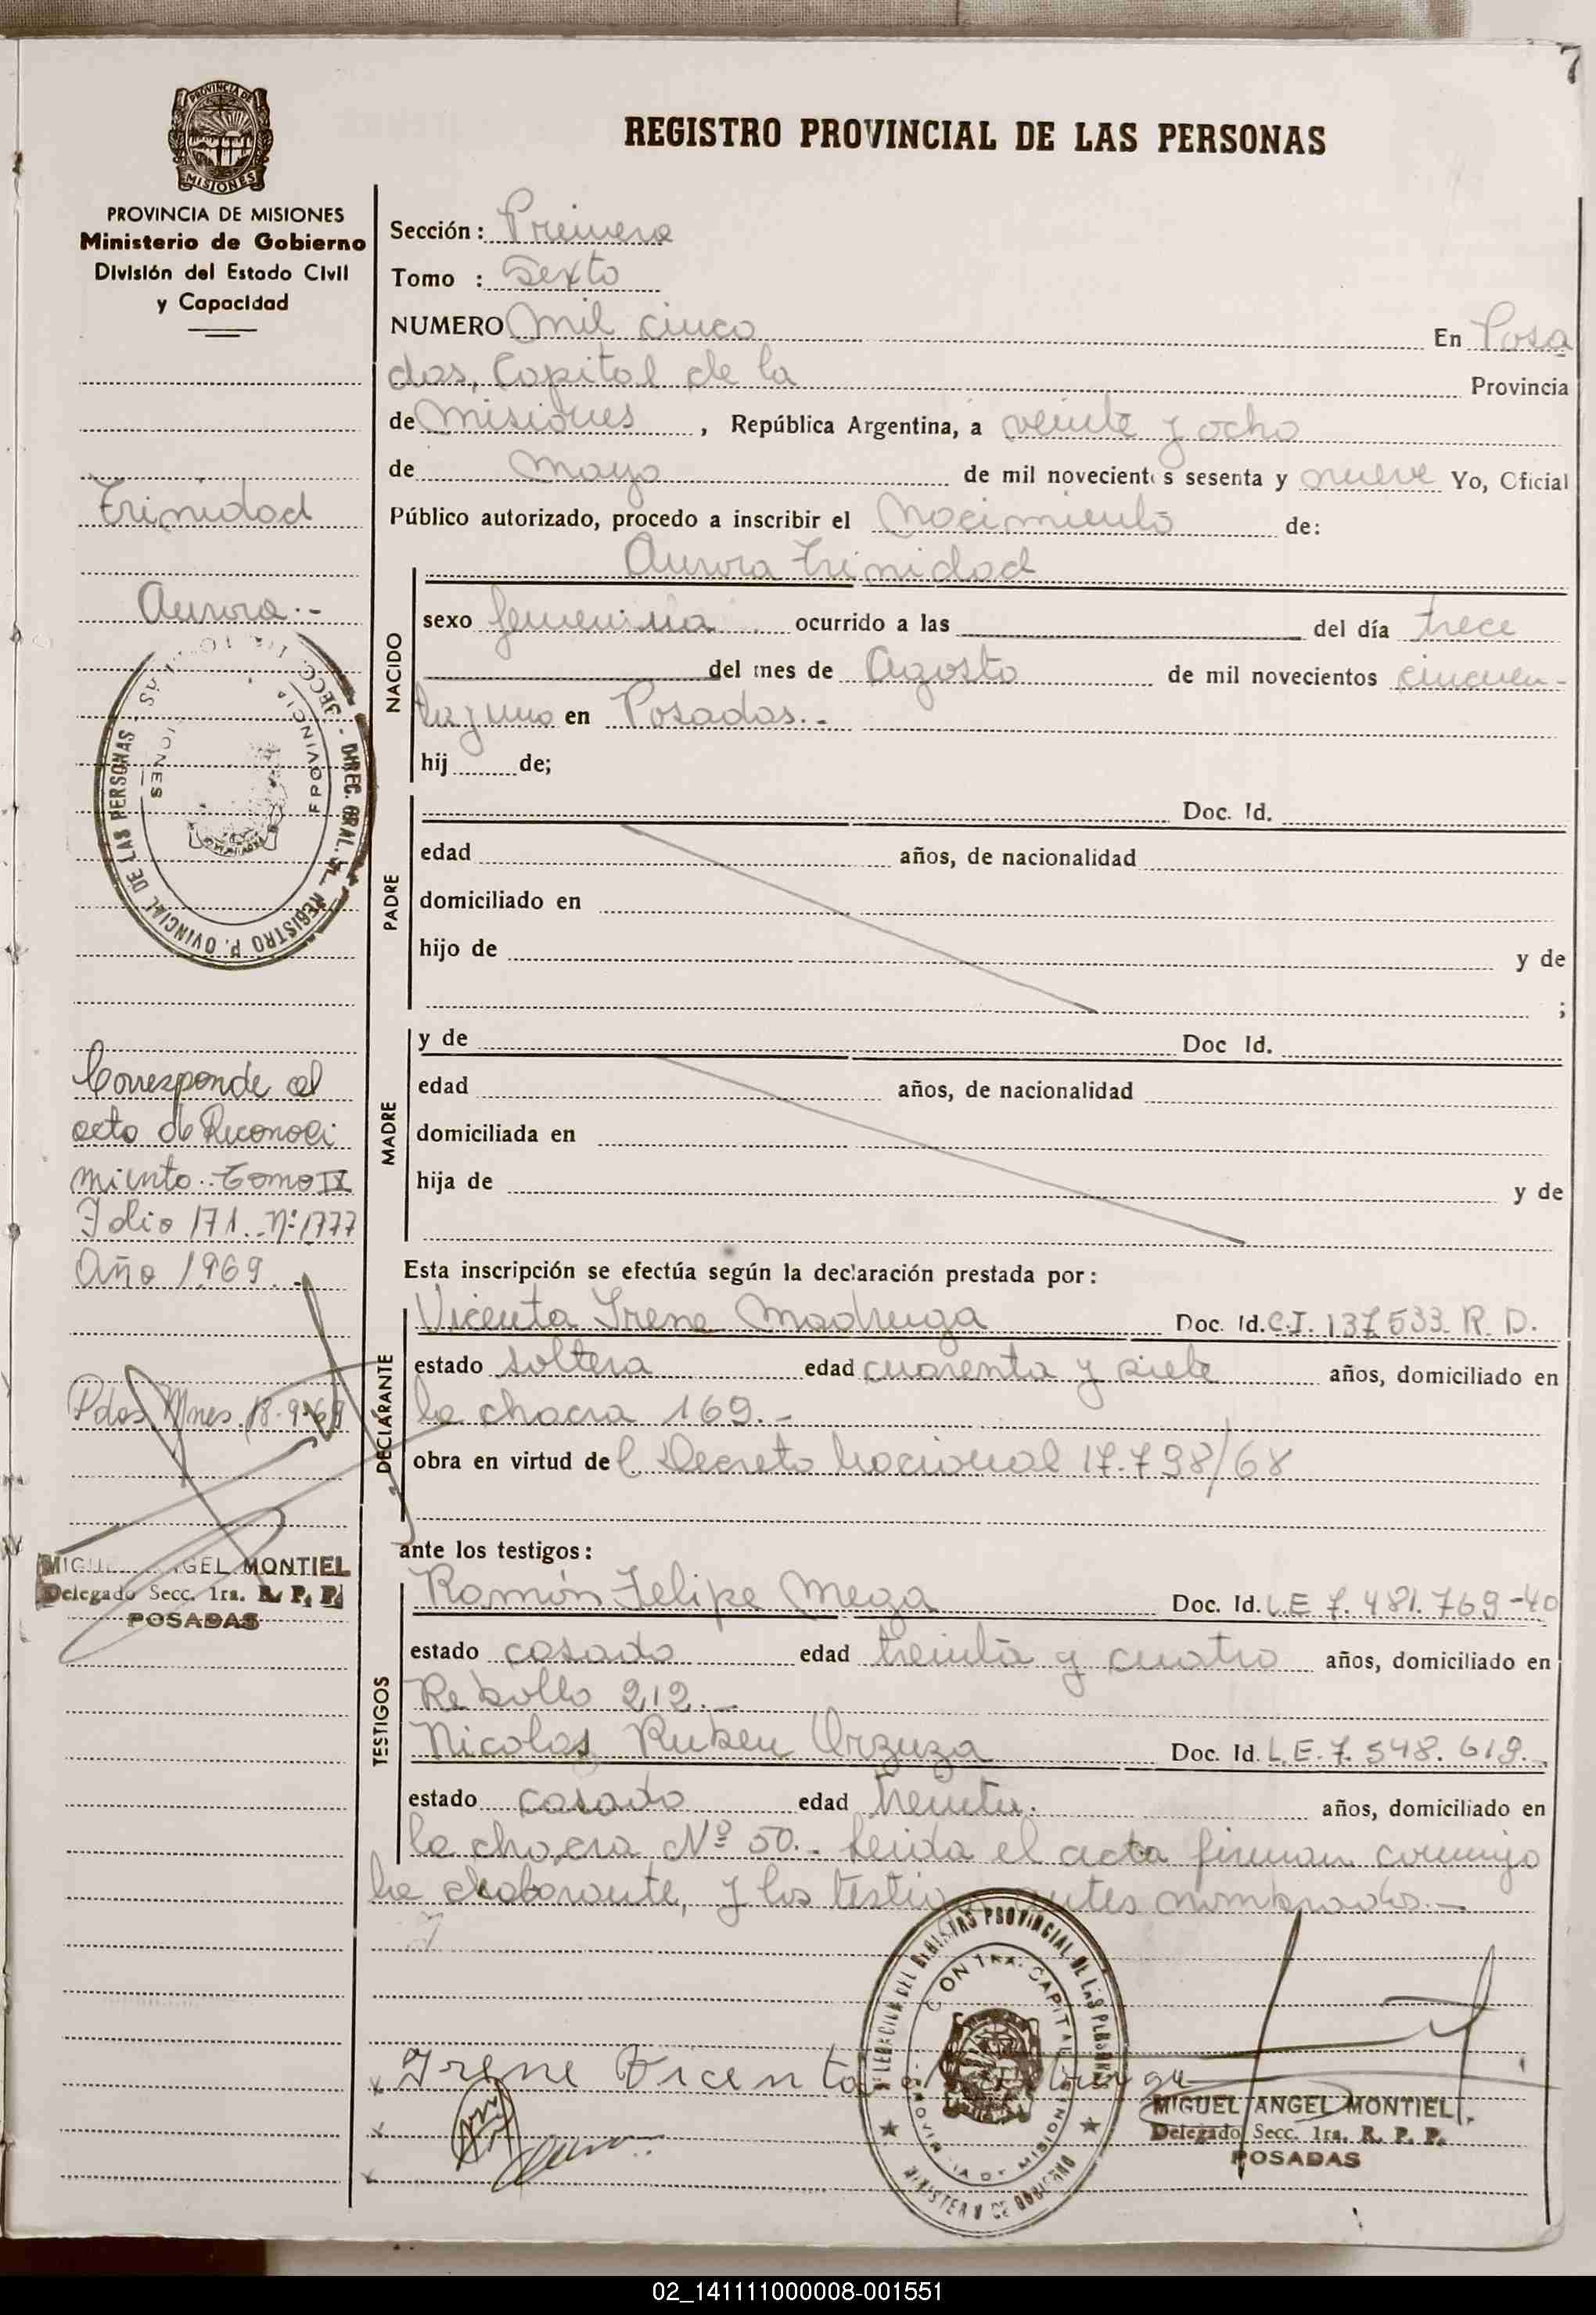 7
PROVINCIA DE MISIONES
REGISTRO PROVINCIAL DE LAS PERSONAS
PROVINCIA DE MISIONES
Ministerio de Gobierno
División del Estado Civil
y Capacidad
Trinidad
Aurora.-
Corresponde al
acta de Reconoci
miento. Tomo IX
Folio 171. Nº 1777
Año 1969.
Pdas Mnes. 18-9-69
MIGUEL ANGEL MONTIEL
Delegado Secc. 1ra. R. P. P.
POSADAS
Sección: Primera
Tomo : Sexto
NUMERO Mil cinco En Posa
das, Capital de la Provincia
de Misiones, República Argentina, a veinte y ocho
de Mayo de mil novecientos sesenta y nueve Yo, Oficial
Público autorizado, procedo a inscribir el Nacimiento de:
Aurora Trinidad
NACIDO
sexo femenina ocurrido a las del día trece
del mes de Agosto de mil novecientos cincuen-
ta y uno en Posadas.-
hij de;
PADRE
Doc. Id.
edad años, de nacionalidad
domiciliado en
hijo de y de
;
MADRE
y de Doc Id.
edad años, de nacionalidad
domiciliada en
hija de y de
Esta inscripción se efectúa según la declaración prestada por:
DECLARANTE
Vicenta Irene Madruga Doc. Id. C.I. 137.533 R. D.
estado soltera edad cuarenta y siete años, domiciliado en
la chacra 169.-
obra en virtud del Decreto Nacional 17.798/68
ante los testigos:
TESTIGOS
Ramón Felipe Meza Doc. Id. L.E 7.481.769-40
estado casado edad treinta y cuatro años, domiciliado en
Rebollo 212.-
Nicolas Ruben Orzuza Doc. Id. L.E. 7.548.619.-
estado casado edad treinta. años, domiciliado en
la chacra Nº 50.- Leida el acta firman conmigo
la , y los testigos antes nombrados.-
Irene Vicenta Madruga
MIGUEL ANGEL MONTIEL
Delegado Secc. 1ra. R. P. P.
POSADAS
02_141111000008-001551